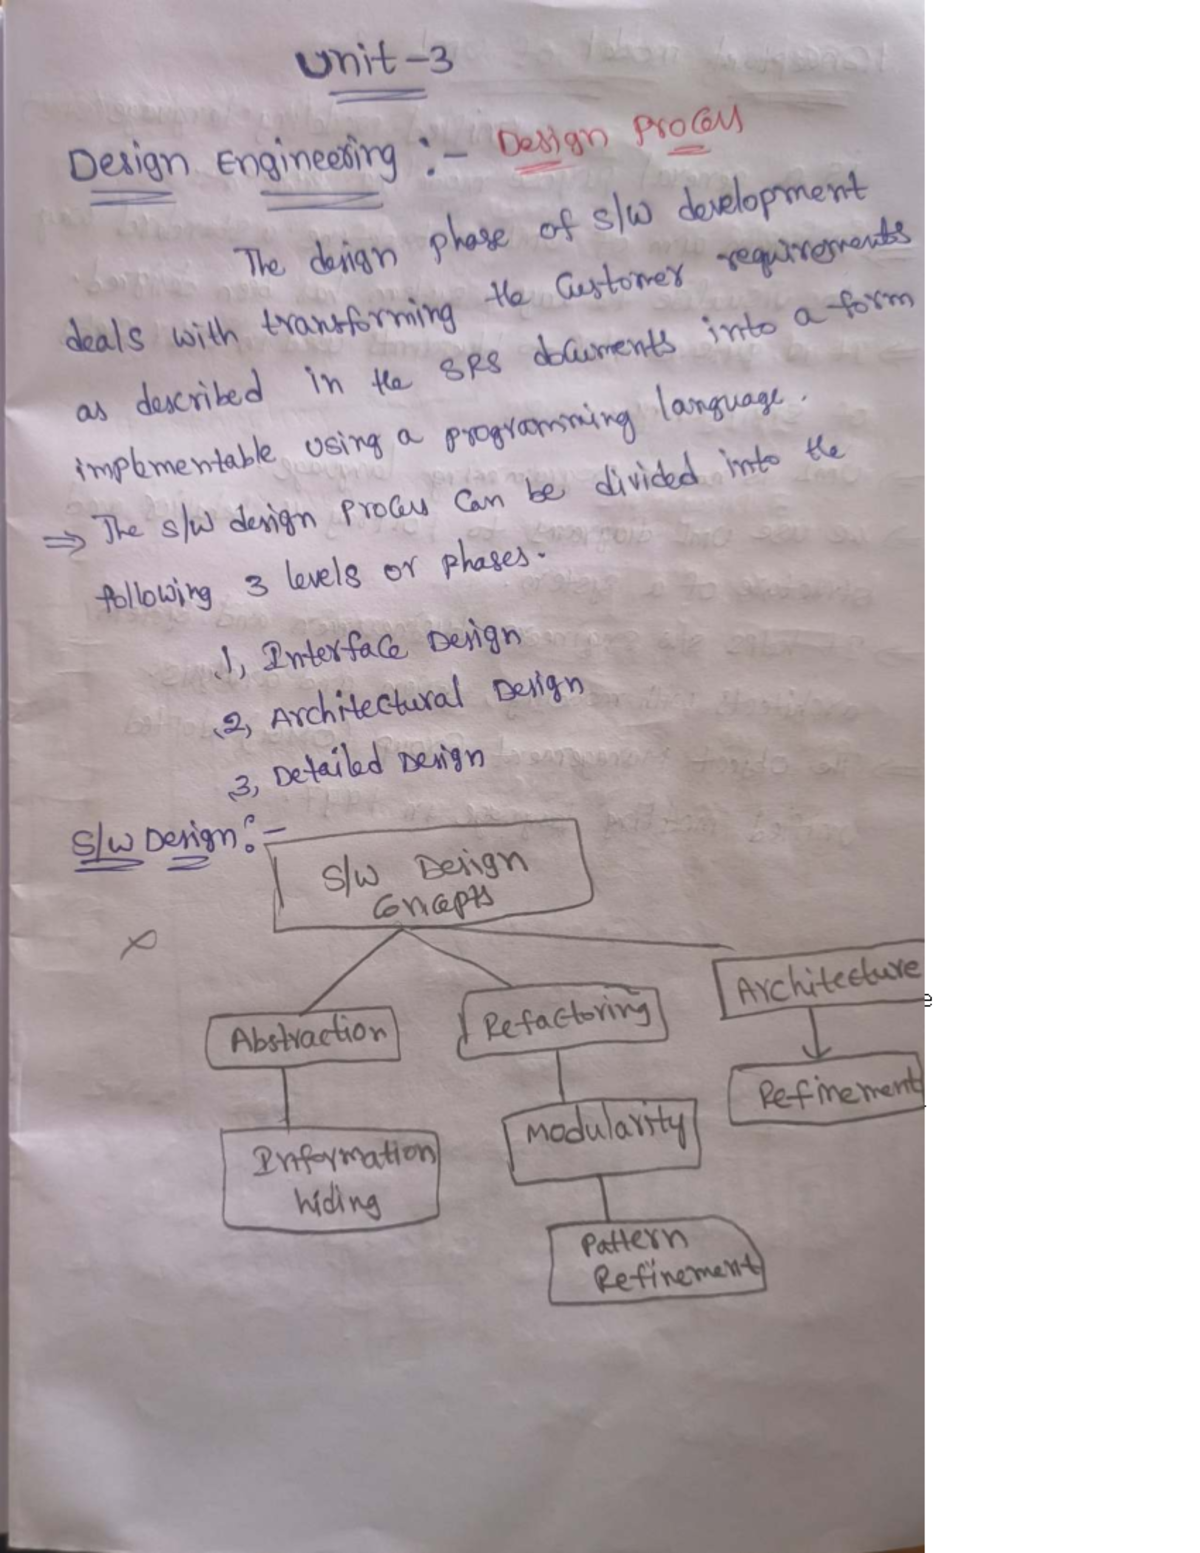 Unit-3
Design Engineering :- Design Process
The design phase of S/W development
deals with transforming the Customer requirements
as described in the SRS documents into a form
implementable using a programming language.
⇒ The S/W design Process Can be divided into the
following 3 levels or phases.
1, Interface Design
2, Architectural Design
3, Detailed Design
S/W Design:-
S/W Design
Concepts
Architecture
e
Abstraction
Refactoring
Refinement
Modularity
Information
hiding
Pattern
Refinement